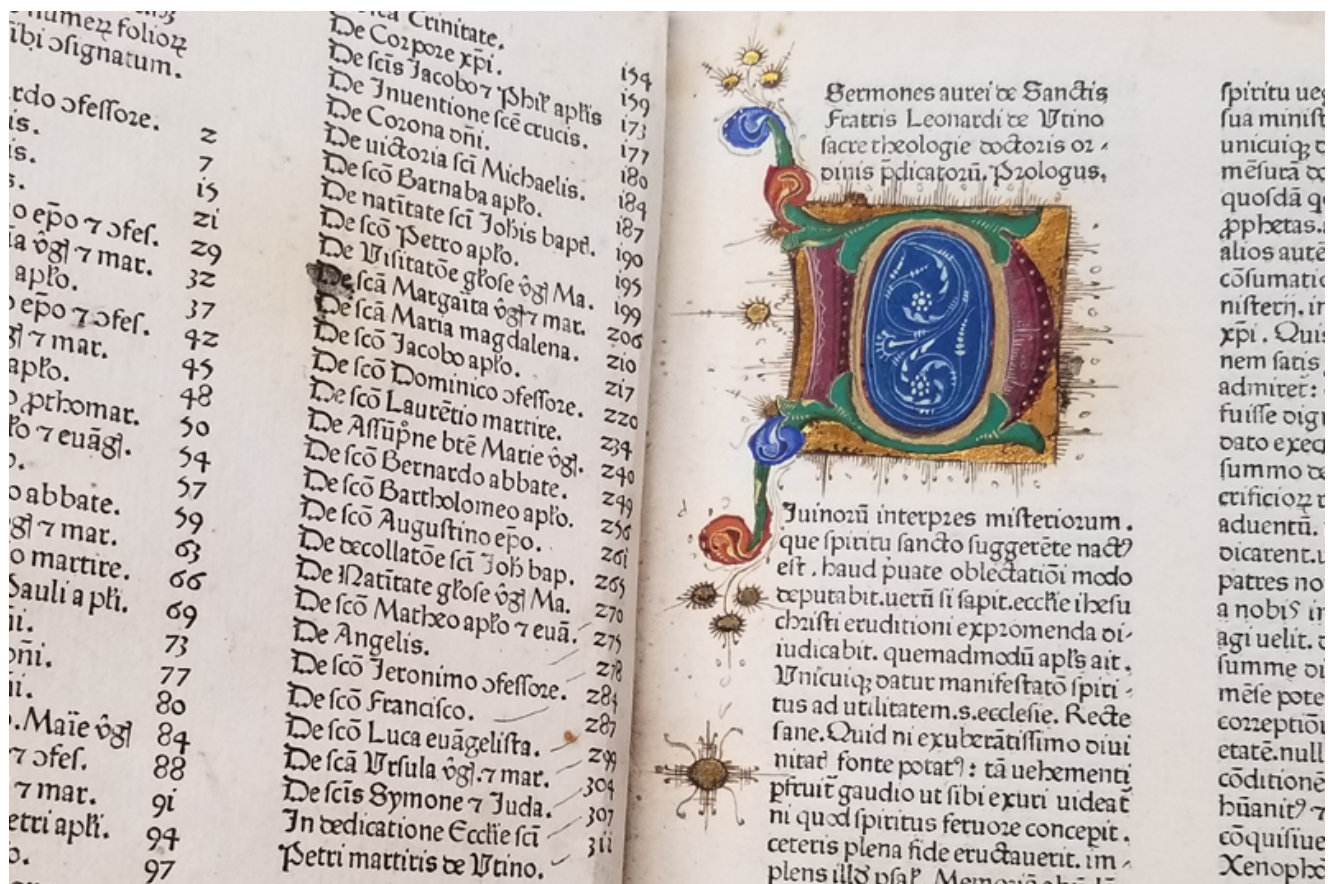 numeꝝ folioꝝ
ibi ɔsignatum.
rdo ɔfessore. 2
is. 7
is. 15
s. 21
o ep̄o ⁊ ɔfes. 29
ia v̂gꝭ ⁊ mar. 32
aplo. 37
o ep̄o ⁊ ɔfes. 42
gꝭ ⁊ mar. 45
apło. 48
o ꝓthomar. 50
ło ⁊ euāgꝭ. 54
o. 57
o abbate. 59
gꝭ ⁊ mar. 63
o martire. 66
Pauli apłi. 69
ni. 73
oñi. 77
ni. 80
o. Maīe v̂gꝭ 84
⁊ ɔfes. 88
⁊ mar. 91
etri apłi. 94
o. 97
Trinitate.
De Corpore xp̄i. 154
De scīs Jacobo ⁊ Phił apłis 159
De Inuentione scē crucis. 173
De Corona dn̄i. 177
De uictoria scī Michaelis. 180
De scō Barnaba apło. 184
De natītate scī Joh̄is bapt̄. 187
De scō Petro apło. 190
De Uisitatōe głose v̂gꝭ Ma. 195
De scā Margaīta v̂gꝭ ⁊ mar. 199
De scā Maria magdalena. 206
De scō Jacobo apło. 210
De scō Dominico ɔfessore. 217
De scō Laurētio martire. 220
De Assūp̄ne btē Marie v̂gꝭ. 234
De scō Bernardo abbate. 240
De scō Bartholomeo apło. 249
De scō Augustino ep̄o. 256
De decollatōe scī Joh̄ bap. 261
De Natītate głose v̂gꝭ Ma. 265
De scō Matheo apło ⁊ euā. 270
De Angelis. 275
De scō Jeronimo ɔfessore. 278
De scō Francisco. 284
De scō Luca euāgelista. 287
De scā Vrsula v̂gꝭ. ⁊ mar. 299
De scīs Symone ⁊ Juda. 304
In dedicatione Eccłie scī 307
Petri martiris de Vtino. 311
Sermones aurei de Sanctis
Fratris Leonardi de Vtino
sacre theologie doctoris or-
dinis p̄dicatorū. Prologus,
D
Iuinorū interpres misteriorum.
que spiritu sancto suggerēte nactꝰ
est. haud p̄uate oblectatiōi modo
deputabit. uerū si sapit. eccłie ihesu
christi eruditioni expromenda di-
iudicabit. quemadmodū apłs ait.
Vnicuiqꝫ datur manifestatō spiri-
tus ad utilitatem.s.ecclesie. Recte
sane. Quid ni exuberātissimo diui
nitat̄ fonte potatꝰ: tā uehementi
pfruit̄ gaudio ut sibi exuri uideat̄
ni quod spiritus feruore concepit.
ceteris plena fide eructauerit. im-
plens illd̄ psał. Memoriā
spiritu
sua
unicuiqꝫ
mēsurā
quosdā
ꝓphetas.
alios autē
cōsumatio
nisterij. in
xp̄i. Quis
nem satis
admiret̄:
fuisse dig
dato exec
summo de
crificioꝝ
aduentū.
dicarent.
patres no
a nobis in
agi uelit.
summe di
mēse pote
correptiōi
etatē. null
cōditionē
hūanitꝰ ⁊
cōquisiue
Xenopho